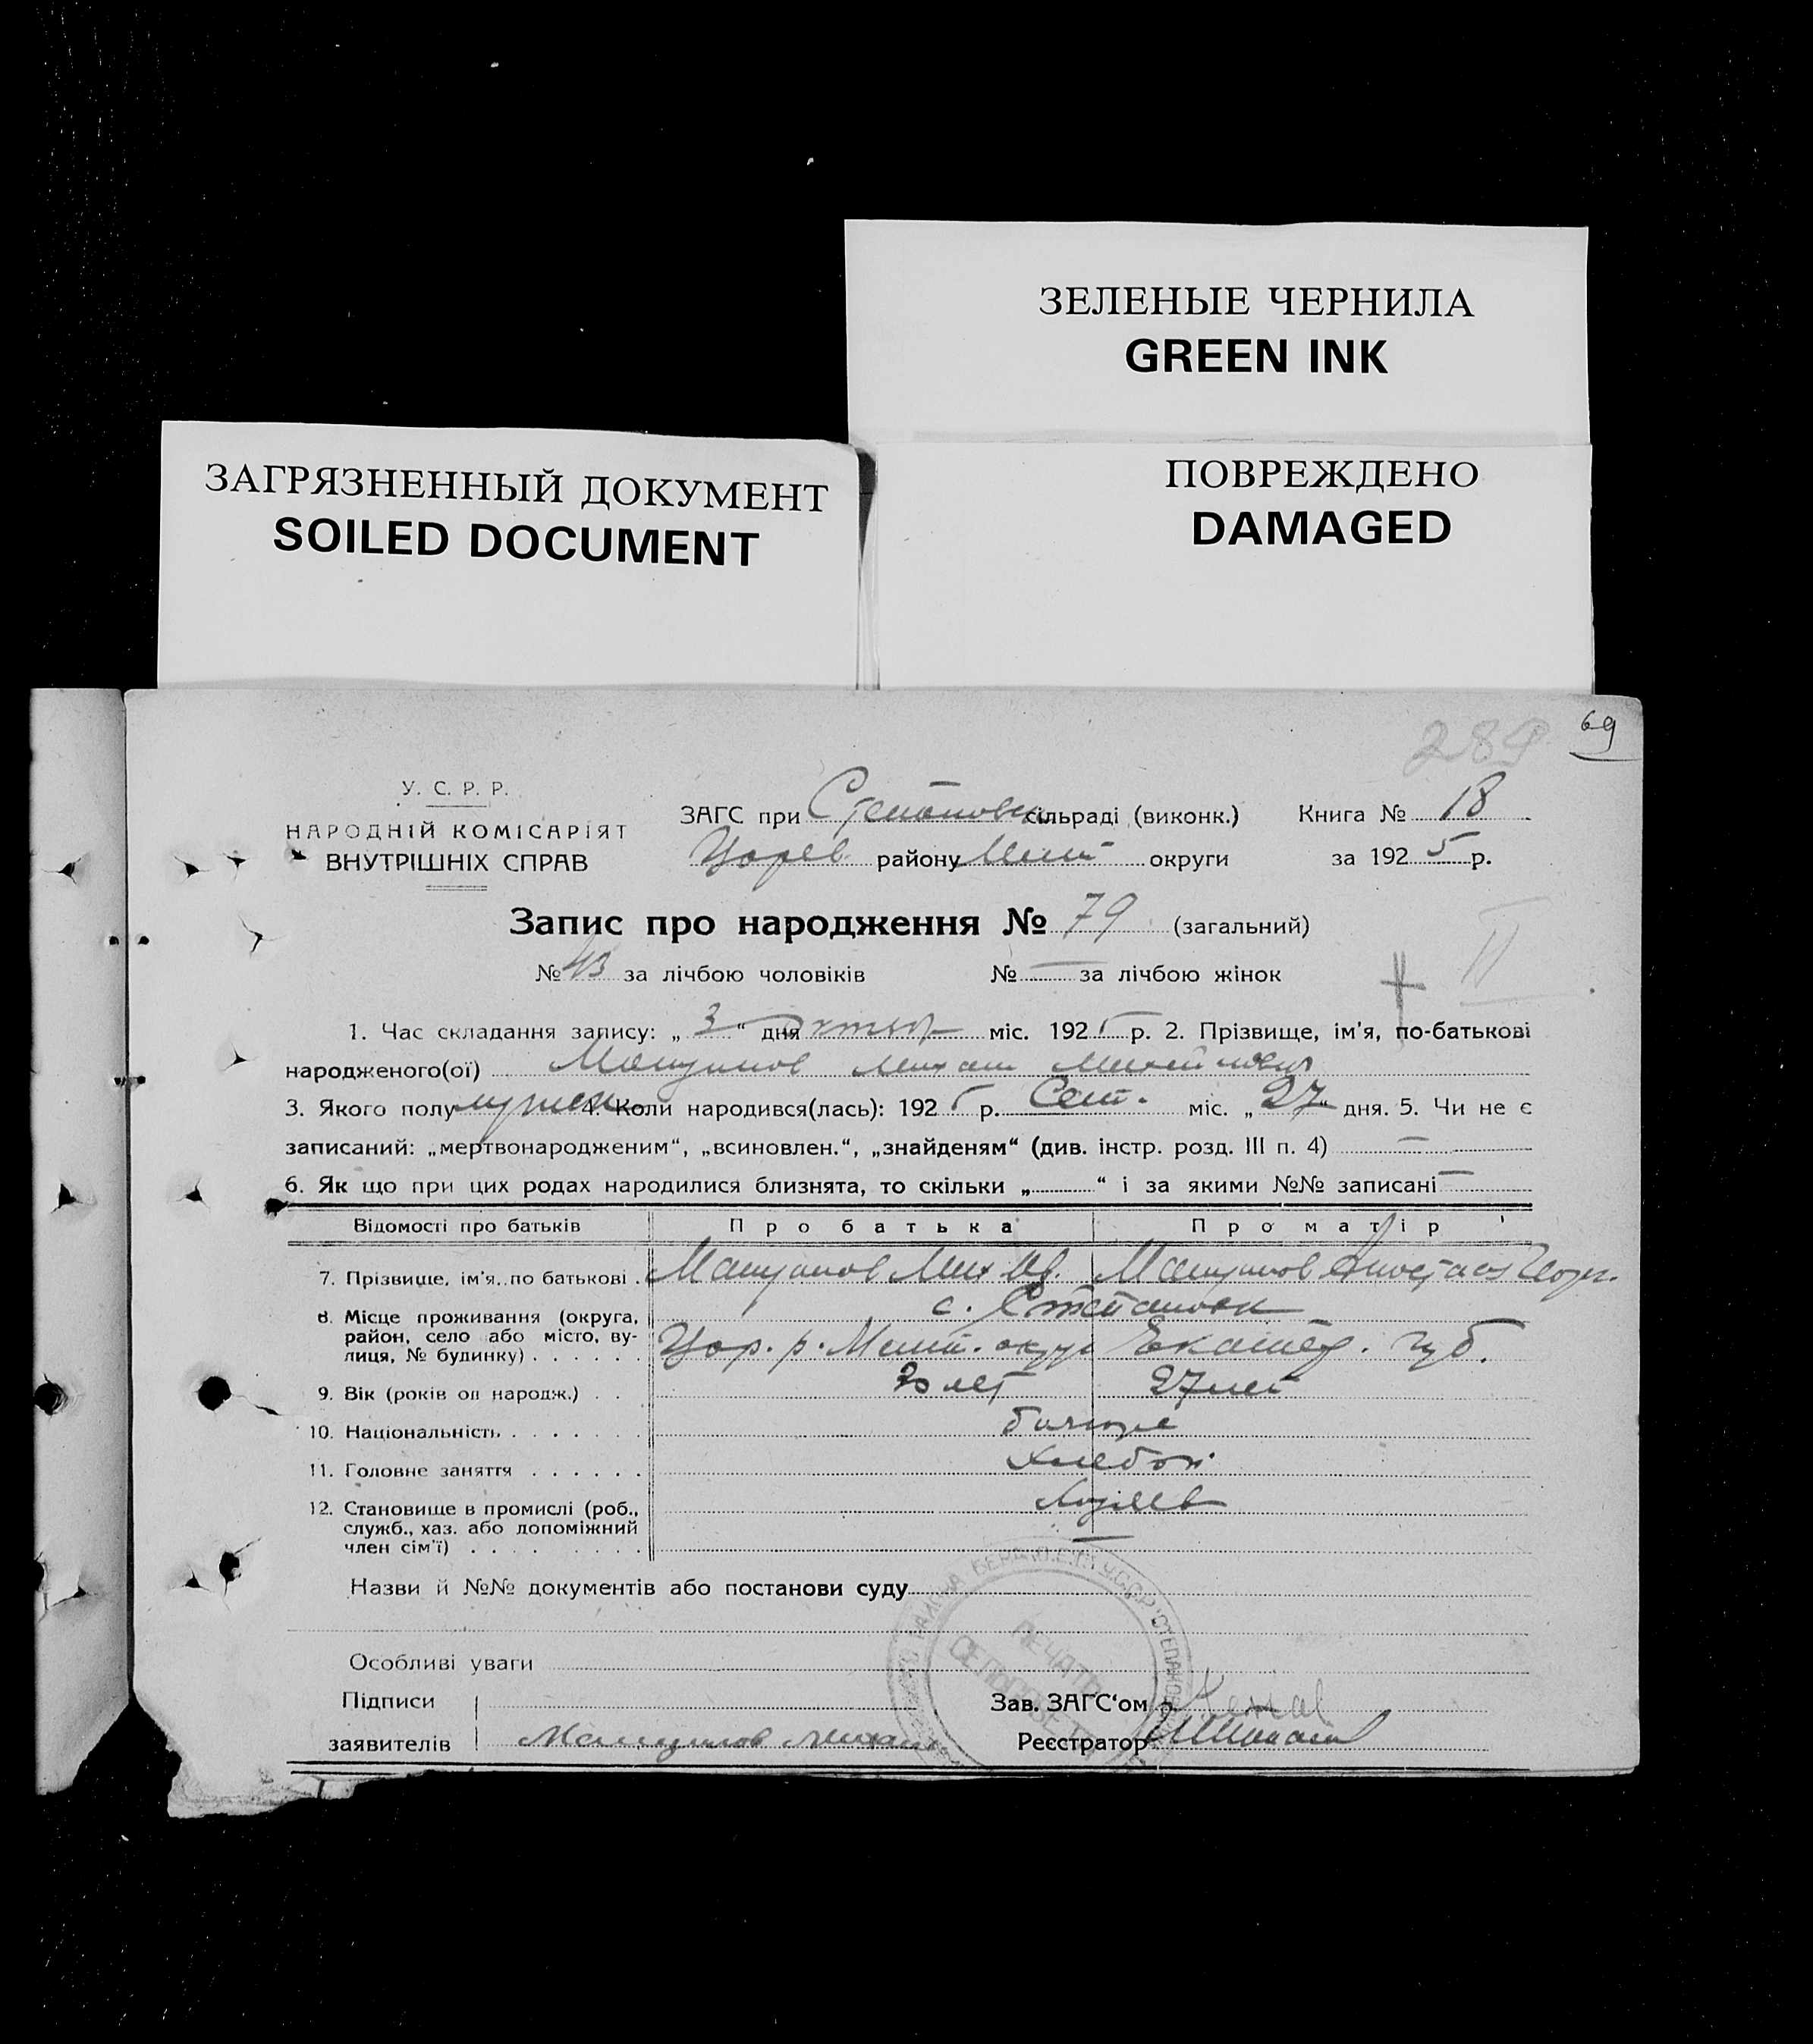 ЗЕЛЕНЫЕ ЧЕРНИЛА
GREEN INK
ЗАГРЯЗНЕННЫЙ ДОКУМЕНТ
SOILED DOCUMENT
ПОВРЕЖДЕНО
DAMAGED
289 69
У. С. Р. Р.
НАРОДНІЙ КОМІСАРІЯТ
ВНУТРІШНІХ СПРАВ
ЗАГС при Степановск сільраді (виконк.) Книга № 18
Царев району Мелит округи за 1925 р.
Запис про народження № 79 (загальний)
№ 43 за лічбою чоловіків № — за лічбою жінок
II
1. Час складання запису: „ 3 “ дня октяб міс. 1925 р. 2. Прізвище, ім’я, по-батькові
народженого(ої) Михаил Михайлович
3. Якого полу мужск 4. Коли народився(лась): 1925 р. Сент. міс. „ 27 “ дня. 5. Чи не є
записаний: „мертвонародженим“, „всиновлен.“, „знайденям“ (див. інстр. розд. III п. 4) —
6. Як що при цих родах народилися близнята, то скільки „ “ і за якими №№ записані —
Відомості про батьків Про батька Про матір
7. Прізвище, ім’я, по батькові . Мих Ив. Анастас Георг.
8. Місце проживання (округа, с. Степановк
район, село або місто, ву-
лиця, № будинку) . . . . . . Цар. р. Мелит. окру Екатер. губ.
9. Вік (років од народж.) . . 30 лет 27 лет
10. Національність . . . . . . . болгаре
11. Головне заняття . . . . . . хлебоп
12. Становище в промислі (роб., хозяев
служб., хаз. або допоміжний
член сім’ї) . . . . . . . . . —
Назви й №№ документів або постанови суду
Особливі уваги
Підписи Зав. ЗАГС‘ом
заявителів Михаил Реєстратор
ПЕЧАТЬ
СЕЛЬСОВЕТА